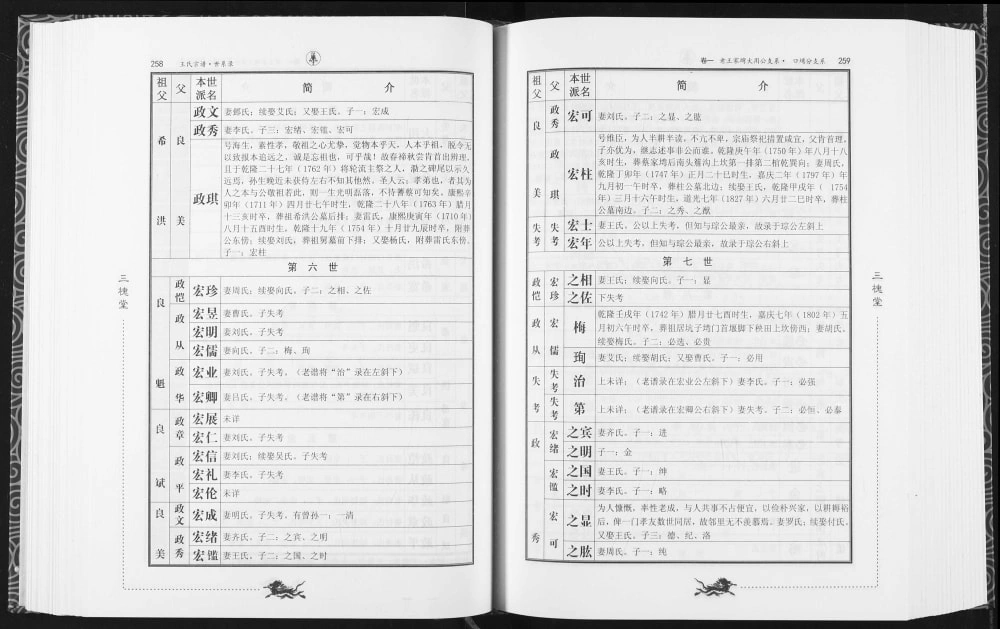 258 王氏宗谱·世系录
祖父 父 本派 世名 简 介
希洪 良美
政文 妻鄢氏;续娶艾氏;又娶王氏。子一:宏成
政秀 妻李氏。子三:宏绪、宏镒、宏可
政琪
号海生,素性孝,敬祖之心尤挚,觉物本乎天,人本乎祖,脱令无
以致报本追远之,诚是忘祖也,可乎哉!故春禘秋尝肯首出辨理,
且于乾隆二十七年(1762年)将轮流主祭之人,勒之碑尾以示久
远焉,孙生晚近未获侍左右不知其他然。圣人云:孝弟也,者其为
人之本与公敬祖若此,则一生光明磊落,不待蓍蔡可知矣。康熙辛
卯年(1711年)四月廿七年时生,乾隆二十八年(1763年)腊月
十三亥时卒,葬祖希洪公墓后排;妻雷氏,康熙庚寅年(1710年)
八月十五酉时生,乾隆十九年(1754年)十月廿九辰时卒,附葬
公东傍;续娶刘氏,葬祖舅墓前下排;又娶杨氏,附葬雷氏东傍。
子一:宏柱
第六世
良魁
政恺 宏珍 妻周氏;续娶向氏。子二:之相、之佐
政从 宏昱 妻曹氏。子失考
宏明 妻刘氏。子失考
宏儒 妻向氏。子二:梅、珣
政华 宏业 妻刘氏。子失考。(老谱将“治”录在左斜下)
宏卿 妻吕氏。子失考。(老谱将“第”录在右斜下)
良斌
政章 宏展 未详
宏仁 妻刘氏。子失考
政平 宏信 妻刘氏;续娶吴氏。子失考
宏礼 妻李氏。子失考
宏伦 未详
良美
政文 宏成 妻明氏。子失考。有曾孙一:一消
政秀 宏绪 妻齐氏。子二:之宾、之明
宏镒 妻王氏。子二:之国、之时
三槐堂
卷一 老王家塆大用公支系· 塆分支系 259
祖父 父 本派 世名 简 介
良美
政秀 宏可 妻刘氏。子二:之显、之胘
政琪 宏柱
号维臣,为人半耕半读,不亢不卑,宗庙祭祀措置咸宜,父肯首理,
子亦优为,继志述事非公而谁。乾隆庚午年(1750年)年八月十八
亥时生,葬蔡家塆后南头薤沟上坎第一排第二棺乾巽向;妻周氏,
乾隆丁卯年(1747年)正月二十巳时生,嘉庆二年(1797年)年
九月初一午时卒,葬柱公墓北边;续娶王氏,乾隆甲戌年(1754
年)三月十六年时生,道光七年(1827年)六月廿二巳时卒,葬柱
公墓南边。子二:之秀、之猷
失考 失考 宏士 妻王氏。公以上失考。但知与琮公最亲,故录于琮公左斜上
宏年 公以上失考。但知与琮公最亲,故录于琮公右斜上
第七世
政恺 宏珍 之相 妻王氏;续娶向氏。子一:显
之佐 下失考
政从 宏儒
梅
乾隆壬戌年(1742年)腊月廿七酉时生,嘉庆七年(1802年)五
月初六午时卒,葬祖居坑子塆门首堰脚下秧田上坎傍西;妻胡氏,
续娶梅氏。子二:必选、必贵
珣 妻艾氏;续娶胡氏;又娶曹氏。子一:必用
失考
失考 治 上未详;(老谱录在宏业公左斜下)妻李氏。子一:必强
失考 第 上未详;(老谱录在宏卿公右斜下)妻失考。子二:必恒、必泰
政秀
宏绪 之宾 妻齐氏。子一:进
之明 子一:金
宏镒 之国 妻王氏。子一:绅
之时 妻李氏。子一:略
宏可 之显
为人慷慨,率性老成,与人共事不占便宜,以俭朴兴家,以耕耨裕
后,俾一门孝友数世同居,故邻里无不羡慕焉。妻罗氏;续娶付氏。
又娶王氏。子三:德、纪、洛
之胘 妻周氏。子一:纯
三槐堂